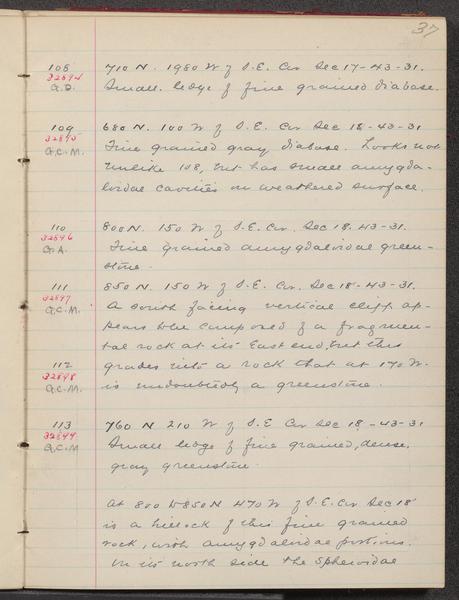 37
108 710 N. 1980 W of S.E. Cor Sec 17-43-31.
32894 Small ledge of fine grained diabase.
G.D.
109 680 N. 100 W of S.E. Cor Sec 18-43-31
32895 Fine grained gray diabase. Looks not
G.C.M. unlike 108, but has small amygda-
loidal cavities on weathered surface.
110 800 N. 150 W of S.E. Cor. Sec 18. 43-31.
32896 Fine grained amygdaloidal green-
G.A. stone.
111 850 N. 150 W of S.E. Cor. Sec 18-43-31.
32897 A south facing vertical cliff ap-
G.C.M. pears to be composed of a fragmen-
tal rock at its East end, but this
112 grades into a rock that at 170 W.
32898 is undoubtedly a greenstone.
G.C.M.
113 760 N 210 W of S.E Cor Sec 18-43-31
32899 Small ledge of fine grained, dense,
G.C.M gray greenstone.
At 800 to 850 N 470 W of S.E. Cor Sec 18
is a hillock of this fine grained
rock, with amygdaloidal portions.
On its north side the spheroidal